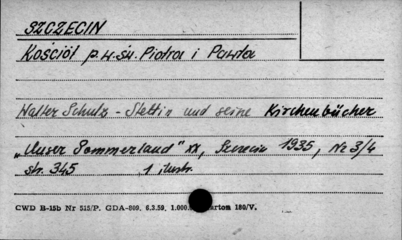 SZCZECIN
Kościół p.w. św. Piotra i Pawła
Walter Schulz - Stettin und seine Kirchenbücher
„Unser Pommerland" XX, Szczecin 1935, Nr 3/4
str. 345 1 ilustr.
CWD B-15b Nr 515/P. GDA-809. 6.3.59. 1.000. karton 180/V.